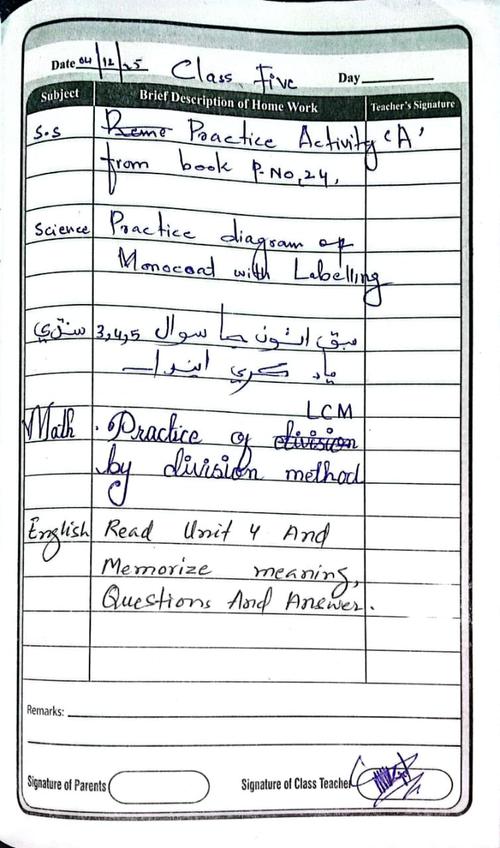 Date 04/12/25 Class Five Day
Subject Brief Description of Home Work Teacher's Signature
S.S Practice Activity 'A'
from book P.No,24,
Science Practice diagram of
Monocoat with Labelling
سنڌي سبق اٺون جا سوال 3,4,5
ياد ڪري ايندا
LCM
Math . Practice of division
by division method
English Read Unit 4 And
Memorize meaning,
Questions And Answer.
Remarks:
Signature of Parents Signature of Class Teacher